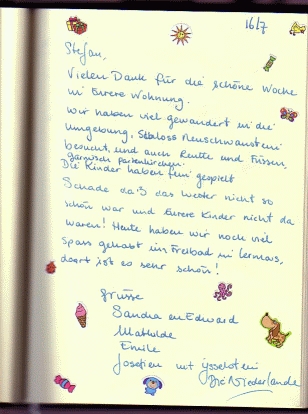 16/7
Stefan,
Vielen Dank für die schöne Woche
in Eurere Wohnung.
Wir haben viel gewandert in die
Umgebung, Schloss Neuschwanstein
besucht, und auch Reutte und Füssen,
Garmisch Partenkirchen.
Die Kinder haben fein gespielt
Schade daß das Weter nicht so
schön war und Eurere Kinder nicht da
waren! Heute haben wir noch viel
Spass gehabt im Freibad in Lermoos,
doort ist es sehr schön!
Grüsse
Sandra en Edward
Mathilde
Emile
Josefien mit IJsselstein
Die Niederlande